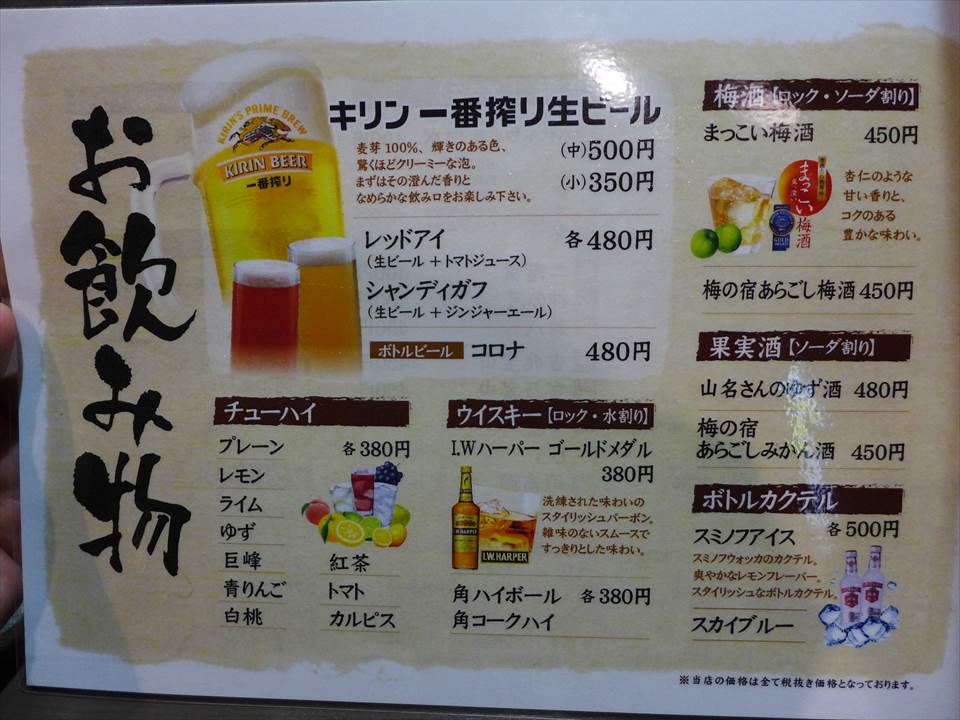 お飲み物
KIRIN'S PRIME BREW
KIRIN BEER
一番搾り
キリン一番搾り生ビール
麦芽100%、輝きのある色、
驚くほどクリーミーな泡。
まずはその澄んだ香りと
なめらかな飲み口をお楽しみ下さい。
(中)500円
(小)350円
レッドアイ 各480円
(生ビール + トマトジュース)
シャンディガフ
(生ビール + ジンジャーエール)
ボトルビール コロナ 480円
チューハイ
プレーン 各380円
レモン
ライム
ゆず
巨峰 紅茶
青りんご トマト
白桃 カルピス
ウイスキー【ロック・水割り】
I.Wハーパー ゴールドメダル
380円
洗練された味わいの
スタイリッシュバーボン。
雑味のないスムースで
すっきりとした味わい。
I.W.HARPER
角ハイボール 各380円
角コークハイ
梅酒【ロック・ソーダ割り】
まっこい梅酒 450円
まっこい
梅酒
杏仁のような
甘い香りと、
コクのある
豊かな味わい。
梅の宿あらごし梅酒 450円
果実酒【ソーダ割り】
山名さんのゆず酒 480円
梅の宿
あらごしみかん酒 450円
ボトルカクテル
スミノフアイス 各500円
スミノフウォッカのカクテル。
爽やかなレモンフレーバー。
スタイリッシュなボトルカクテル。
スカイブルー
※当店の価格は全て税抜き価格となっております。